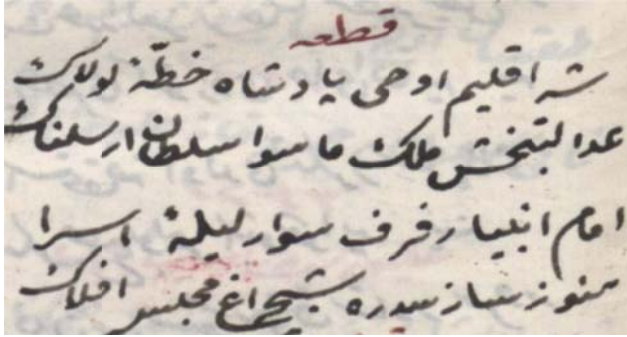 قطعه
شه اقلیم اوحی پادشاه خطّهٔ لولاک
عدالتبخش ملک ماسوا سلطان ارسلناک
امام انبیا رفرف سوار لیلهٔ اسرا
منور ساز سدره شبچراغ مجلس افلاک